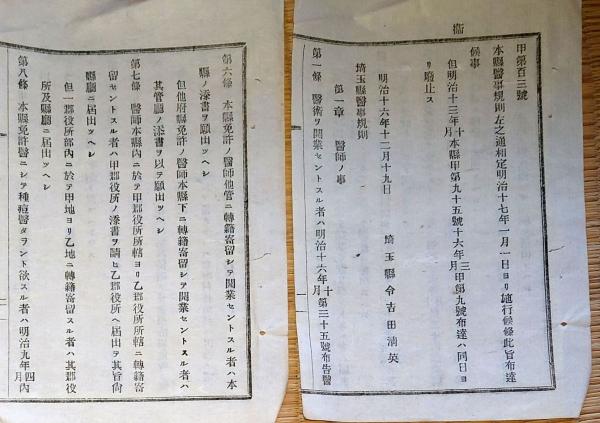 甲第百三號
本縣醫事規則左之通相定明治十七年一月一日ヨリ施行候條此旨布達
候事
但明治十三年十月本縣甲第九十五號十六年三月甲第九號布達ハ同日ヨ
リ廢止ス
明治十六年十二月十九日
埼玉縣令吉田淸英
埼玉縣醫事規則
第一章 醫師ノ事
第一條 醫術ヲ開業セントスル者ハ明治十六年十月第三十五號布告醫
第六條 本縣免許ノ醫師他管ニ轉籍寄留シテ開業セントスル者ハ本
縣ノ添書ヲ願出ツヘシ
但他府縣免許ノ醫師本縣下ニ轉籍寄留シテ開業セントスル者ハ
其管廳ノ添書ヲ以テ願出ツヘシ
第七條 醫師本縣內ニ於テ甲郡役所所轄ヨリ乙郡役所所轄ニ轉籍寄
留セントスル者ハ甲郡役所ノ添書ヲ請ヒ乙郡役所ヘ屆出テ其旨
縣廳ニ屆出ツヘシ
但一郡役所部內ニ於テ甲地ヨリ乙地ニ轉籍寄留スル者ハ其郡役
所及縣廳ニ屆出ツヘシ
第八條 本縣免許醫ニシテ種痘醫タラント欲スル者ハ明治九年四月內